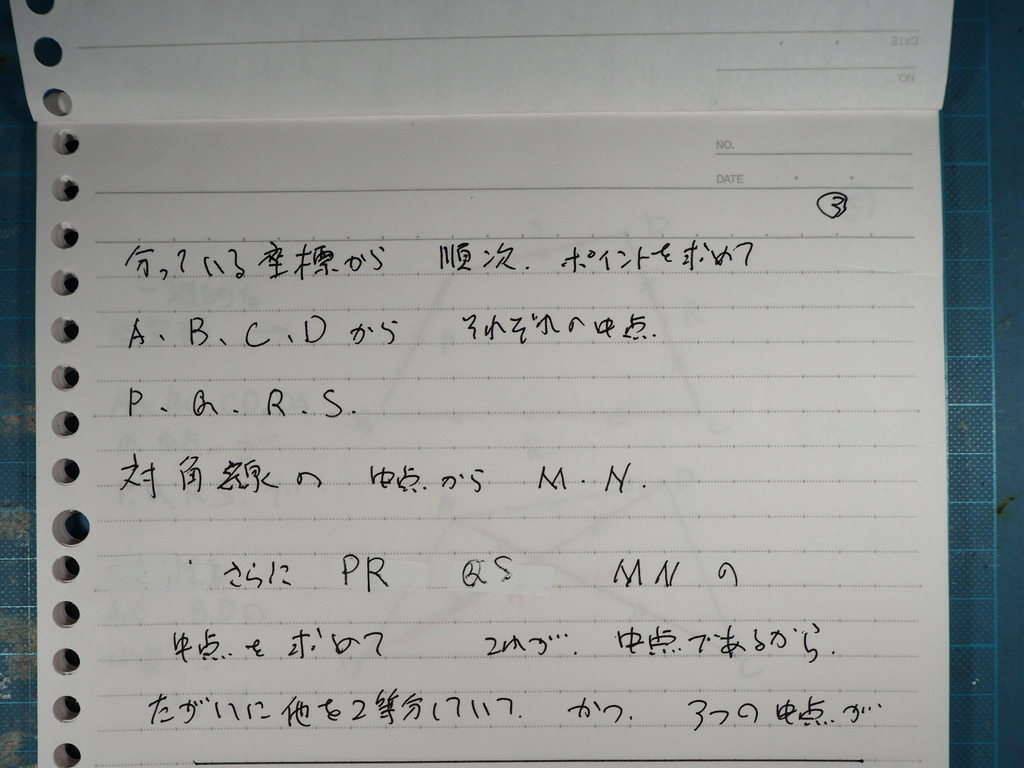 DATE
NO.
NO.
DATE
③
分っている座標から 順次、ポイントを求めて
A、B、C、Dから それぞれの中点.
P、Q、R、S.
対角線の 中点から M、N.
さらに PR QS MNの
中点を求めて これが、中点であるから、
たがいに他を2等分していて、かつ、3つの中点が